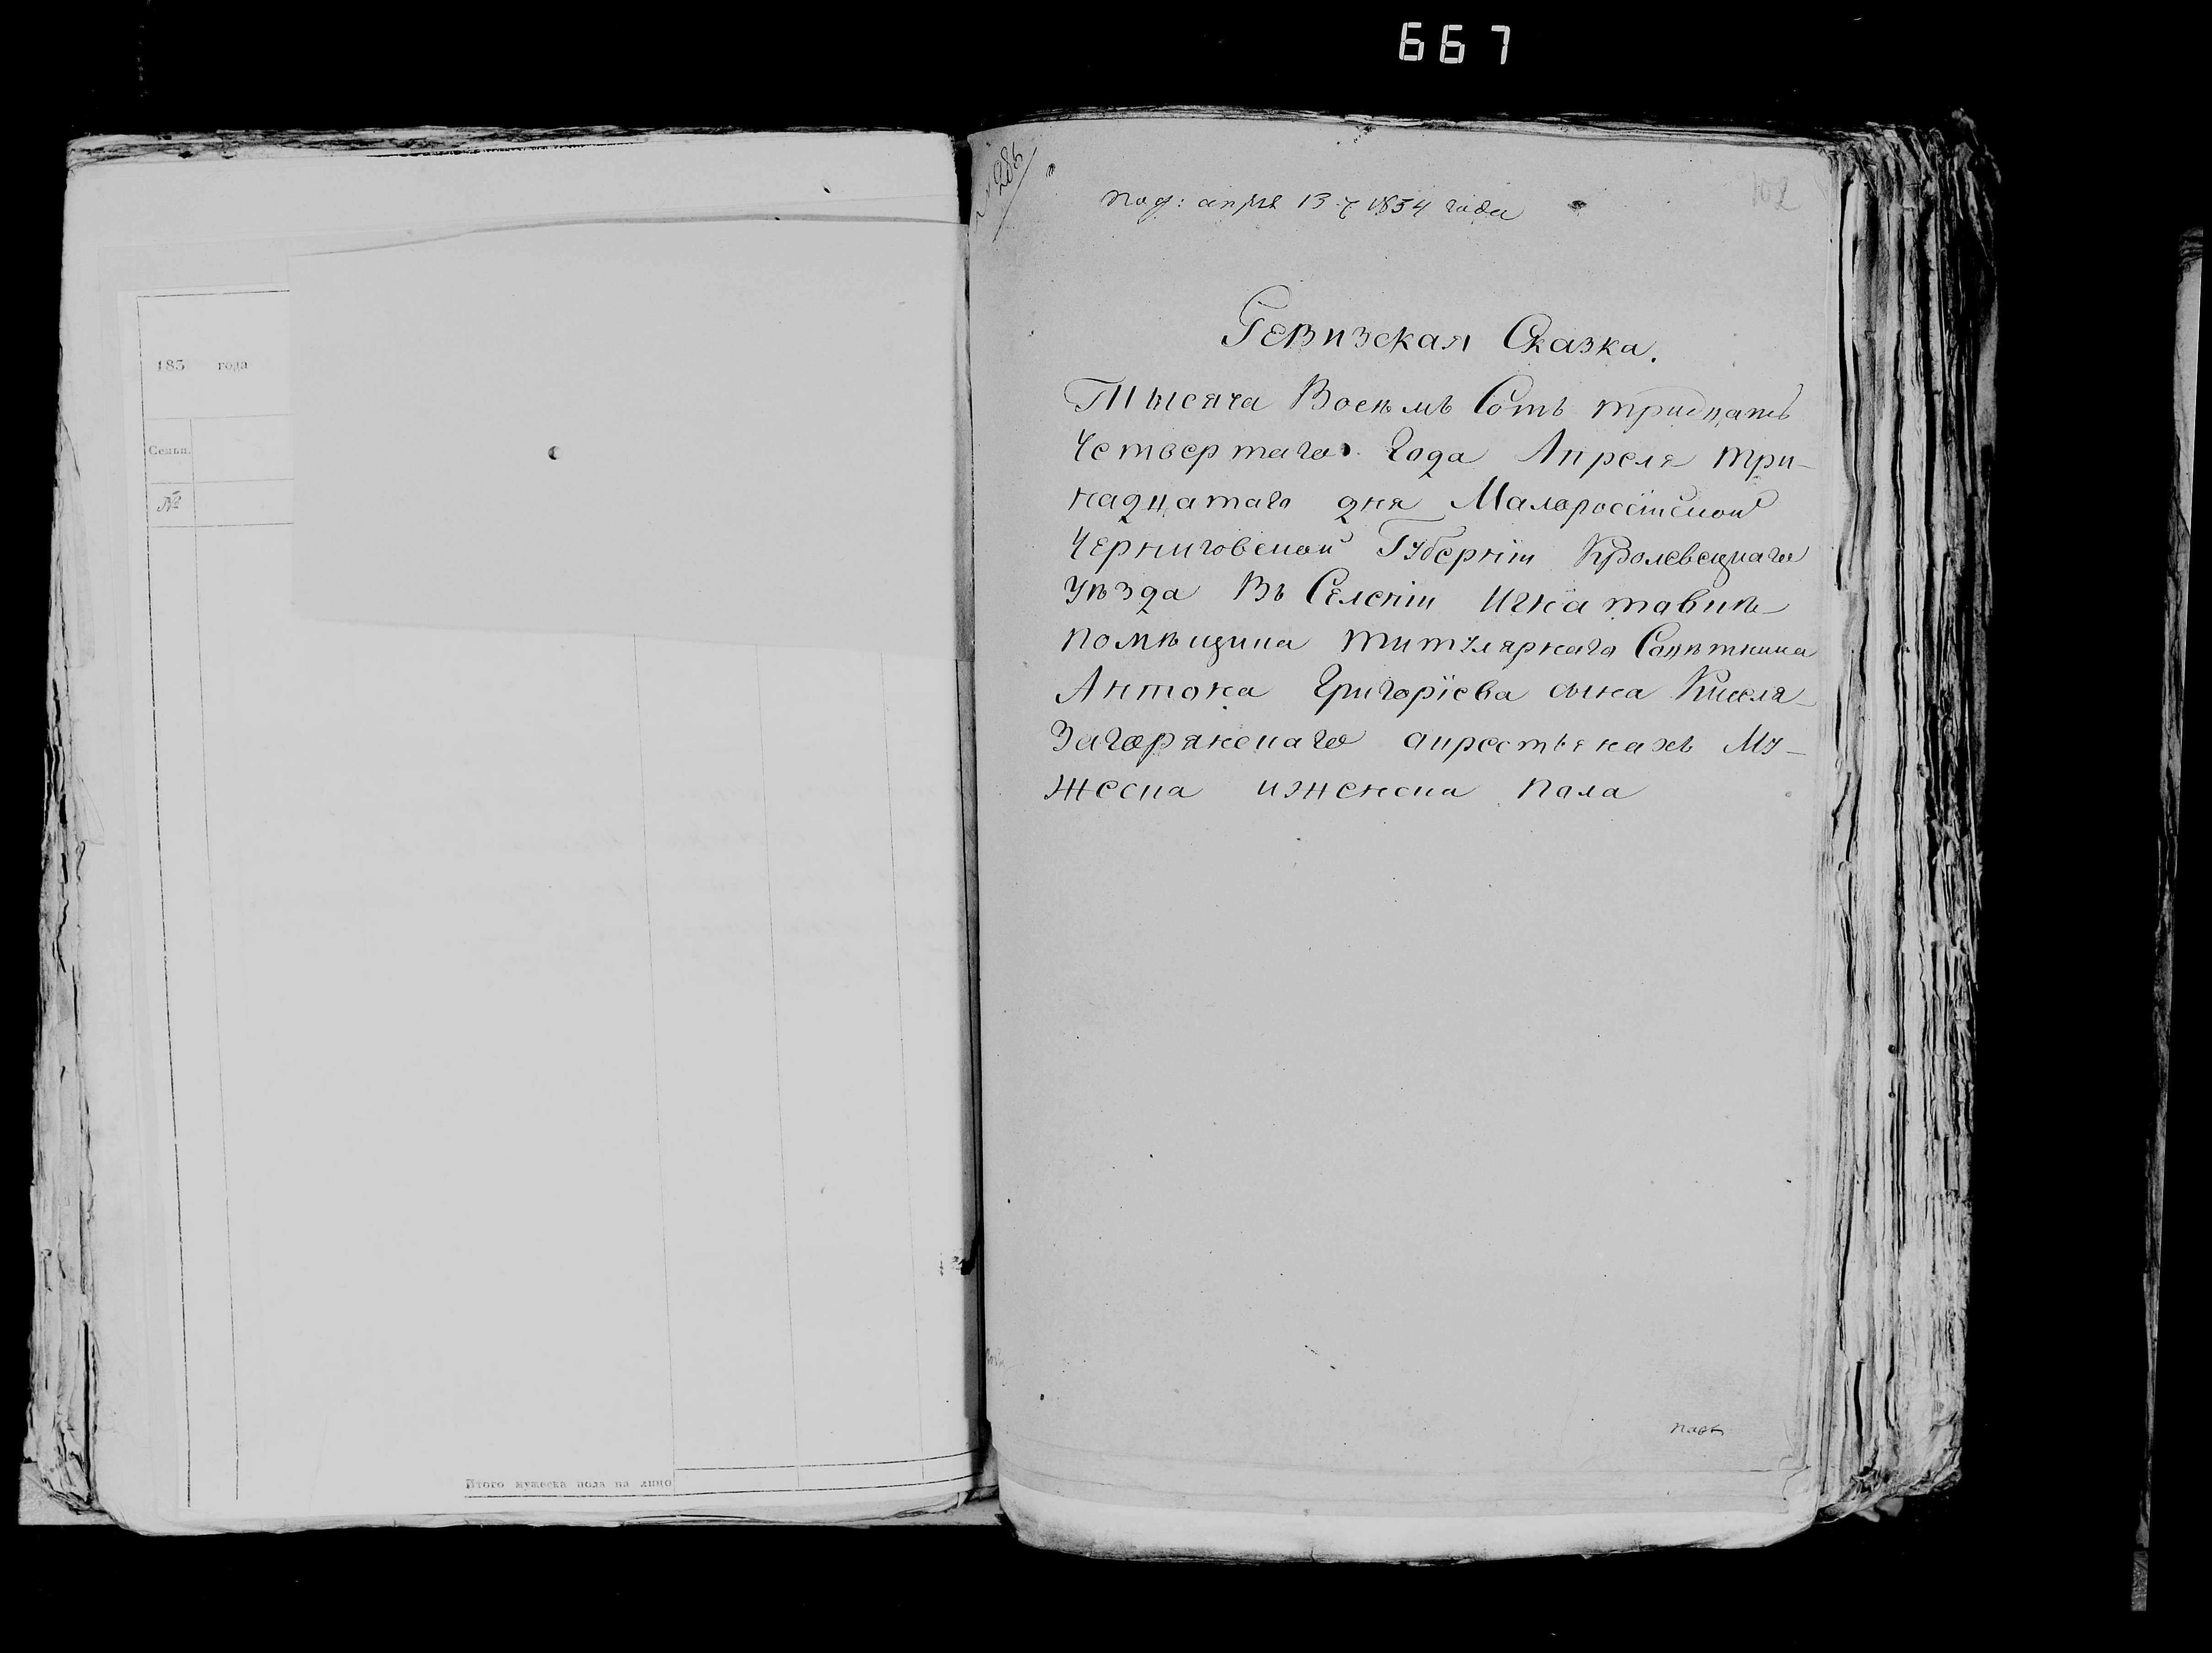 667
185 года
Семьи.
№
Итого мужеска пола на лицо
№ 286
102
Под: апрѣ 13 1834 года
Ревизская Сказка.
Тысяча Восемь Сотъ тридцать
Четвертаго Года Апреля три-
надцатаго дня Малороссійской
Черниговской Губерніи Кролевецкаго
Уѣзда Въ Селеніи Игнатовкѣ
помѣщика титулярнаго Советника
Антона Григоріева сына Киселя-
Загорянскаго окрестьянахъ Му-
жеска иженска пола